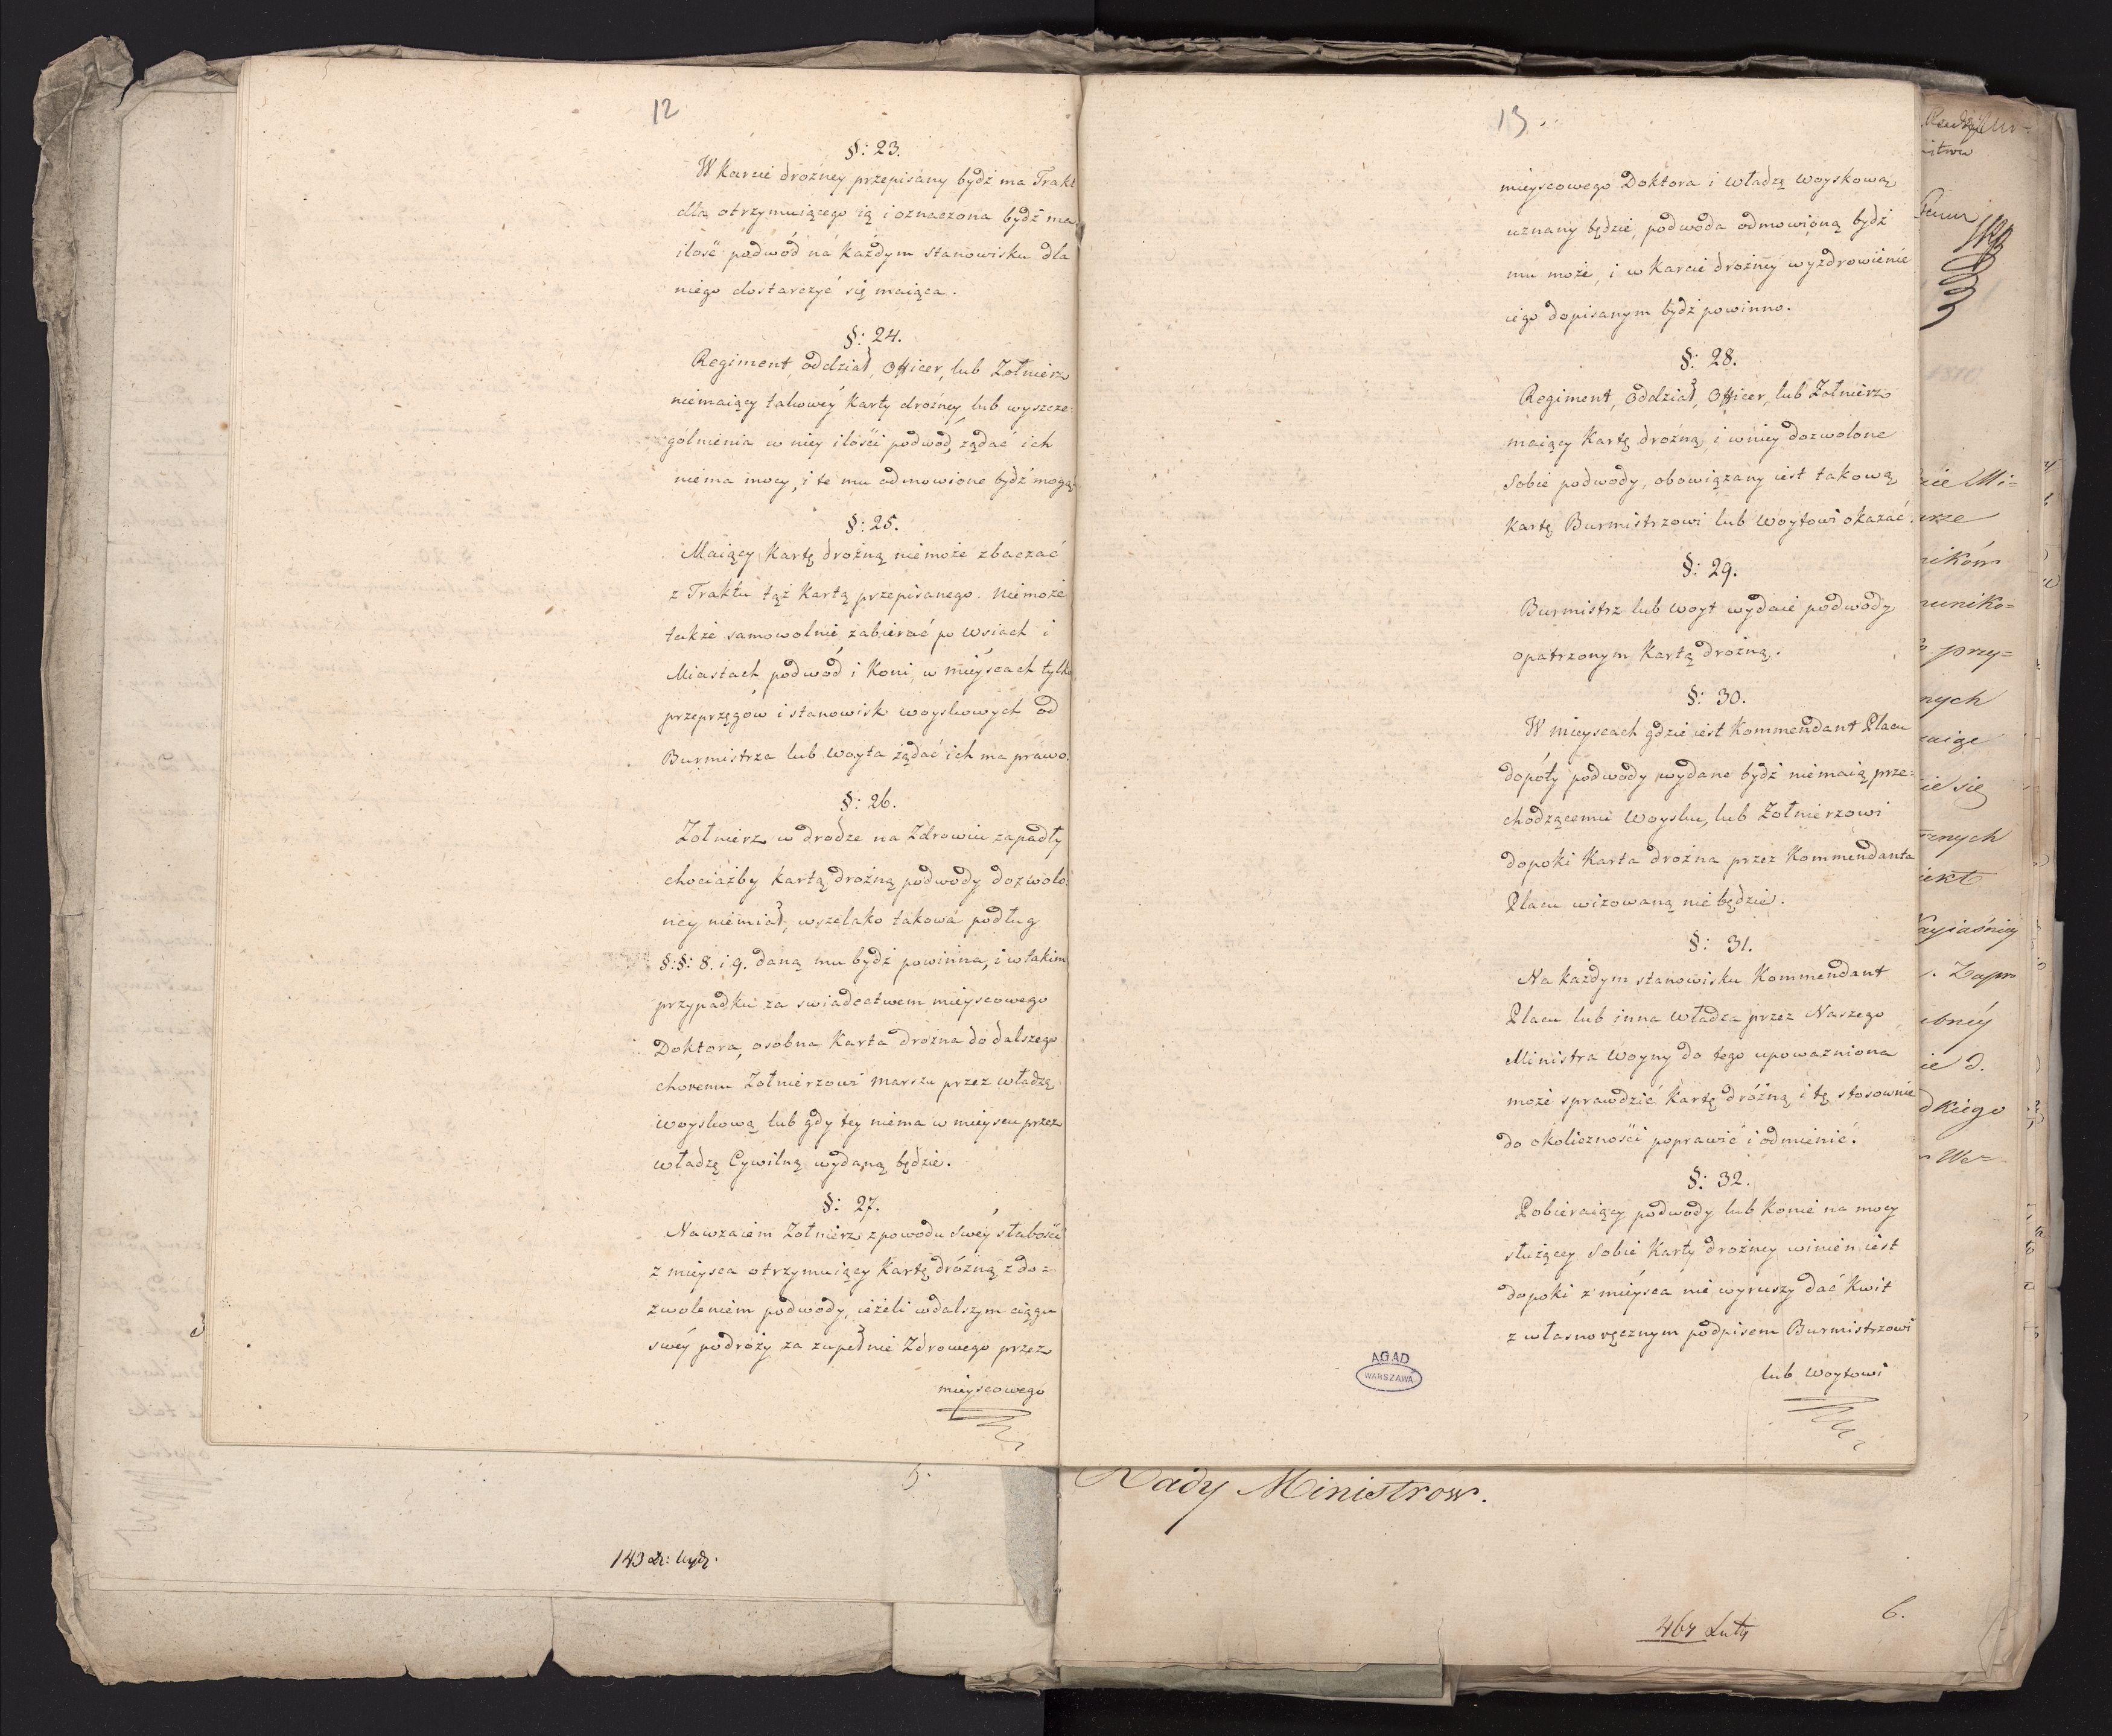 12
§: 23.
W Karcie drożney przepisany bydź ma Trakt
dla otrzymuiącego ią i oznaczona bydź ma
ilość podwód na każdym stanowisku dla
niego dostarczyć się maiąca.
§: 24.
Regiment, oddział, Officer, lub Zołnierz
niemaiący takowéy Karty drożney, lub wyszcze:
gólnienia w niey ilości podwod, żądać ich
niema mocy, i te mu odmowione bydź mogą.
§: 25.
Maiący Kartę drożną niemoże zbaczać
z Traktu tąż Kartą przepisanego. Niemoże
także samowolnie zabierać po Wsiach i
Miastach podwód i Koni, w mieyscach tylko
przeprzęgów i stanowisk woyskowych od
Burmistrza lub Woyta żądać ich ma prawo.
§: 26.
Zołnierz w drodze na Zdrowiu zapadły
chociażby kartą drożną podwody dozwolo:
ney niemiał, wszelako takowa podług
§:§: 8. i 9. daną mu bydź powinna, i w takim
przypadku za swiadectwem mieyscowego
Doktora, osobna Karta drożna do dalszego
choremu Zołnierzowi marszu przez władzą
woyskową lub gdy tey niema w mieyscu przez
władzę Cywilną wydaną będzie.
§: 27.
Nawzaiem Zołnierz z powodu swéy słabości
z mieysca otrzymuiący Kartę dróżną z do=
zwoleniem podwody, ieżeli w dalszym ciągu
swéy podroży za zupełnie Zdrowego przez
mieyscowego
5.
143
13
mieyscowego Doktora i władzą woyskową
uznany będzie, podwoda odmowioną bydź
mu może, i w Karcie drożney wyzdrowienie
iego dopisanym bydź powinno.
§: 28.
Regiment, Oddział, Officer, lub Zołnierz
maiący Kartę drożną, i w niey dozwolone
Sobie podwody, obowiązany iest takową
Kartę Burmistrzowi lub Woytowi okazać.
§: 29.
Burmistrz lub Woyt wydaie podwody
opatrzonym Kartą drożną.
§: 30.
W mieyscach gdzie iest Kommendant Placu
dopóty podwody wydane bydź niemaią prze:
chodzącemu Woysku, lub Zołnierzowi
dopoki Karta drożna przez Kommendanta
Placu wizowaną nie będzie.
§: 31.
Na każdym stanowisku Kommendant
Placu lub inna Władza przez Naszego
Ministra Woyny do tego upoważniona
może sprawdzić Kartę dróżną i tę stosownie
do okoliczności poprawić i odmienić.
§: 32.
Pobieraiący podwody lub Konie na mocy
służącey Sobie Karty drożney winien iest
dopoki z mieysca nie wyruszy dać Kwit
z własnoręcznym podpisem Burmistrzowi
lub Woytowi
AGAD
WARSZAWA
Rady Ministrow.
6.